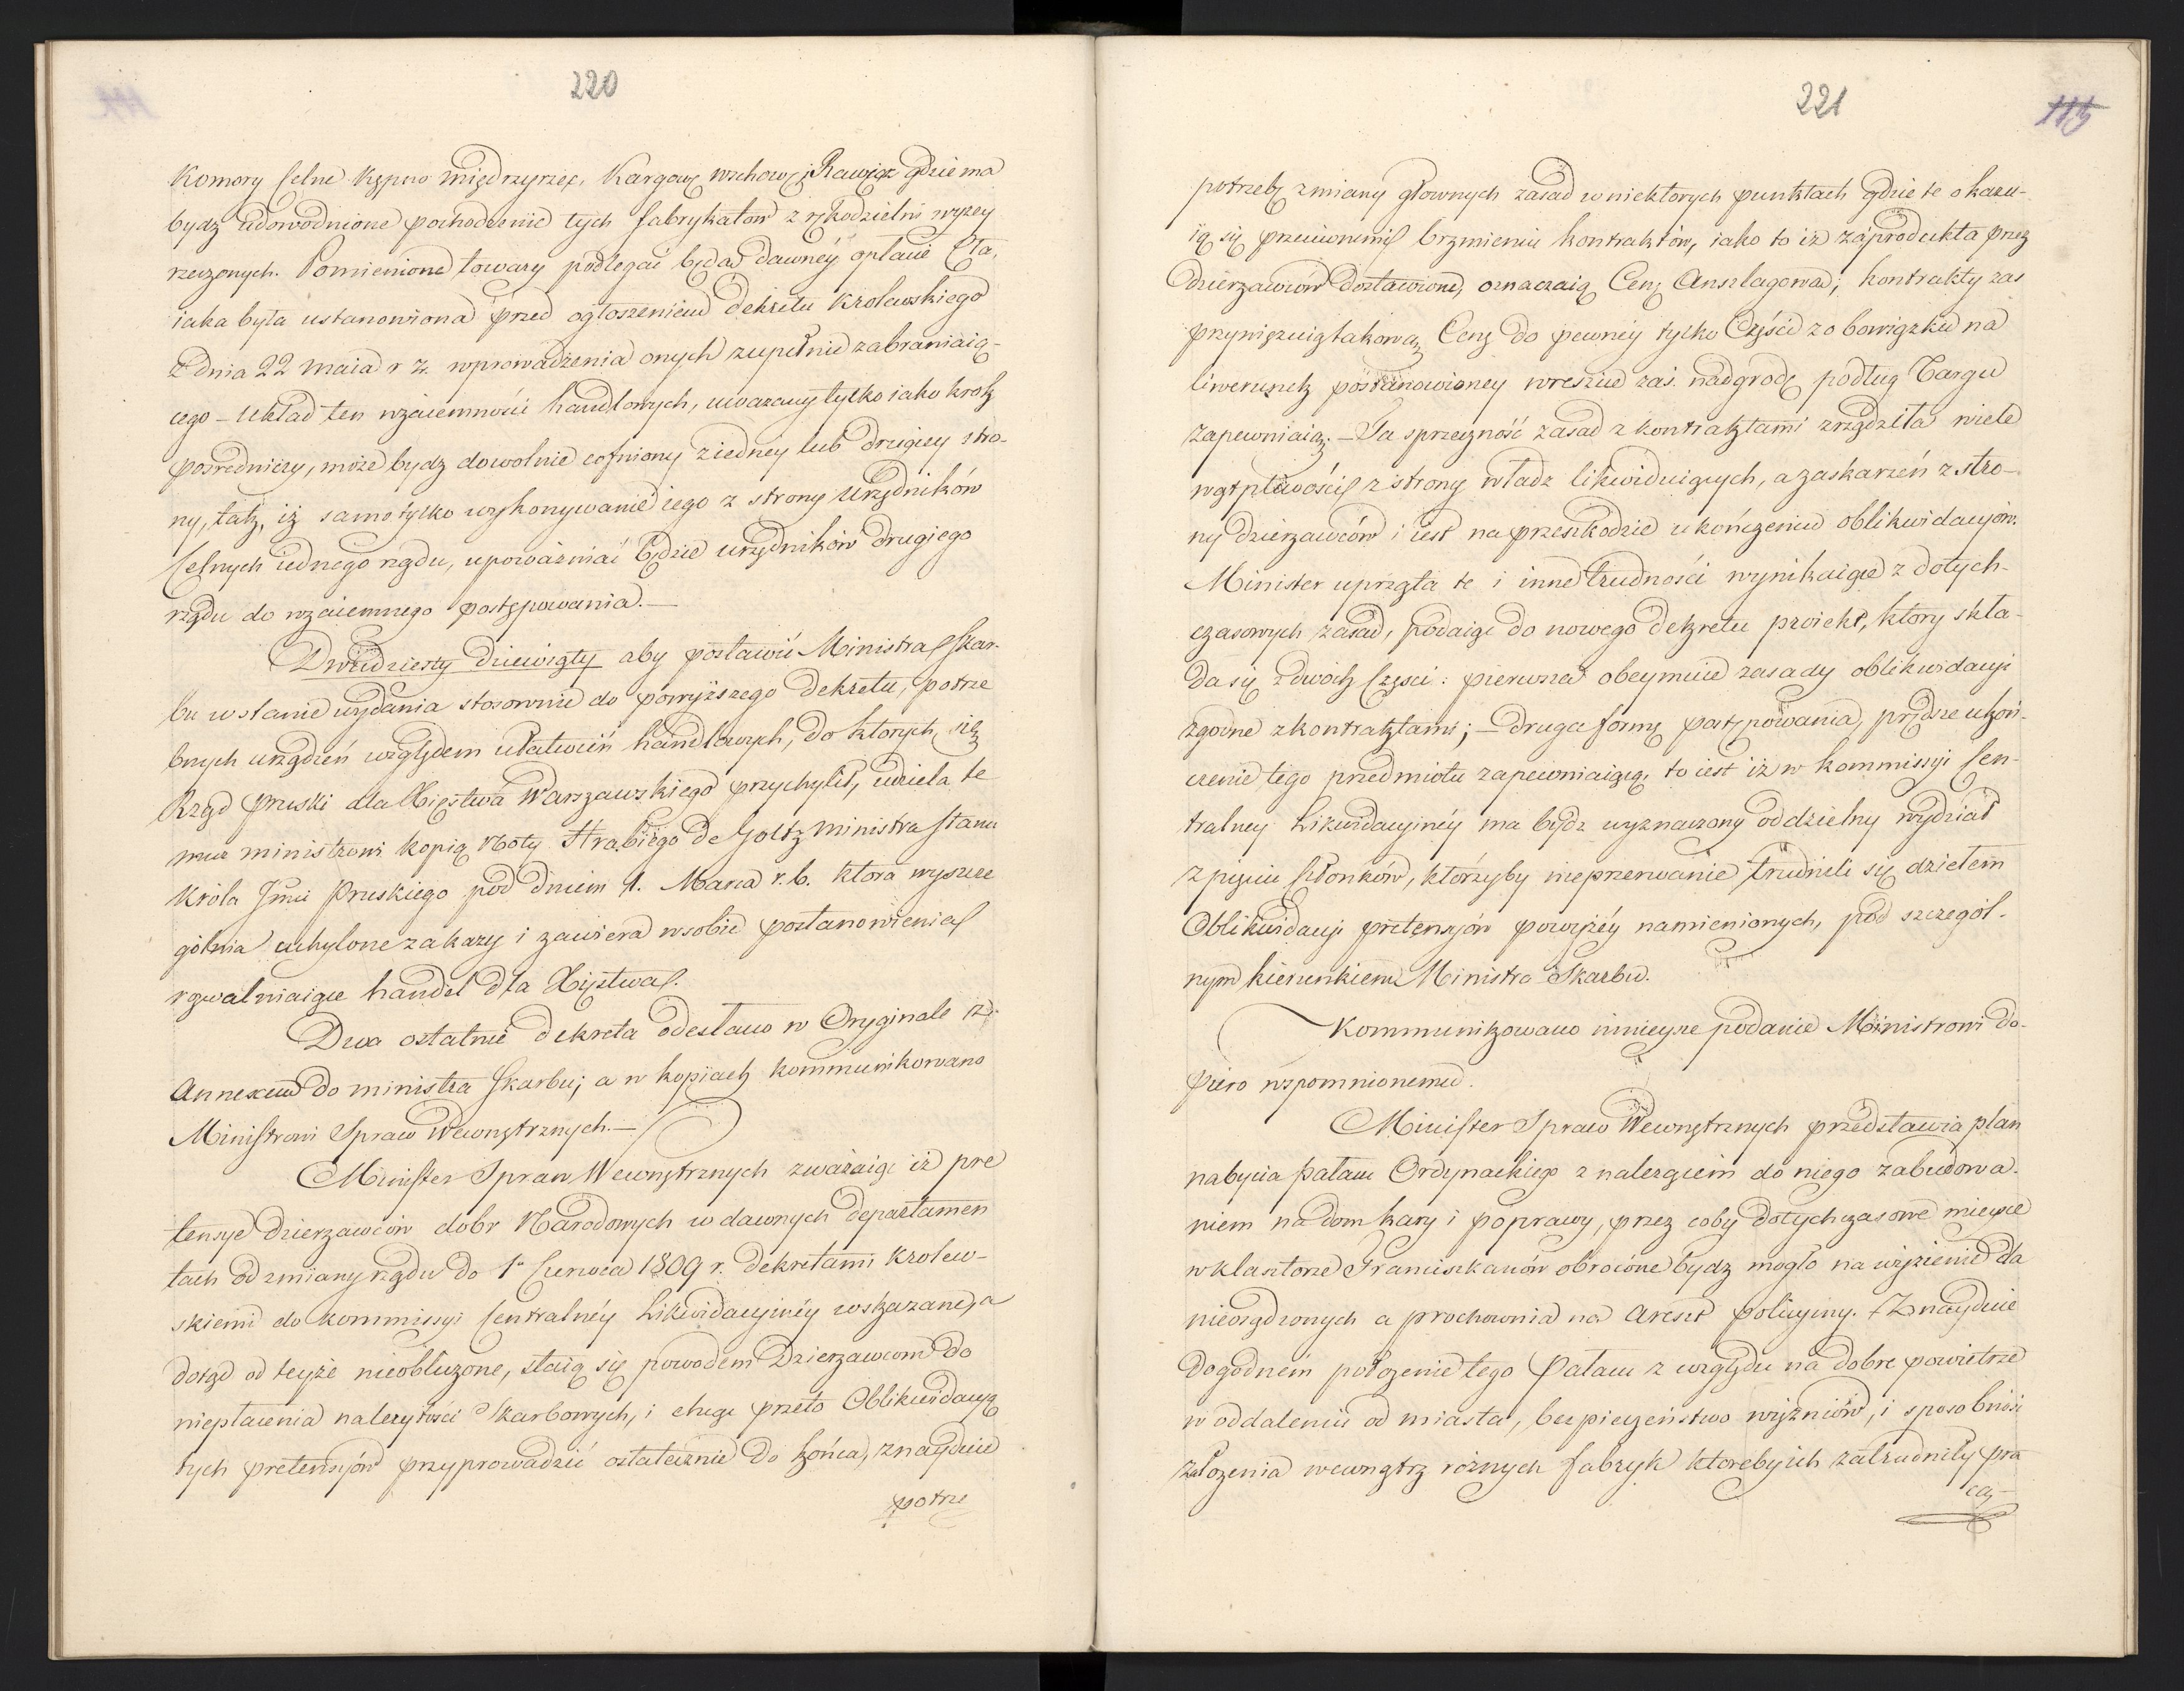 220
Komory Celne Kępno Międzyrzec, Kargowę wschowę i Rawicz gdzie ma
bydz udowodnione pochodzenie tych fabrykatów z rękodzielni wyzey
rzeczonych. Pomienione towary podlegać będą dawnéy opłacie Cła,
iaka była ustanowiona przed ogłoszeniem Dekretu Krolewskiego
z dnia 22 Maia r z. wprowadzenia onych zupełnie zabraniaią-
cego – Układ ten wzaiemności handlowych, uważany tylko iako krok
posredniczy, może bydz dowolnie cofniony z iedney lub drugiey stro-
ny, tak, iż samo tylko wykonywanie iego z strony Urzędników
Celnych iednego rządu, upoważniać będzie urzędników drugiego
rządu do wzaiemnego postępowania. —
Dwudziesty dziewiąty aby postawić Ministra Skar-
bu w stanie wydania stosownie do powyższego Dekretu, potrze
bnych urządzeń względem ułatwień handlowych, do ktorych, się
Rząd Pruski dla Xięstwa Warszawskiego przychylił, udziela te
muż ministrowi kopią Noty Hrabiego de Goltz Ministra Stanu
Króla Jmci Pruskiego pod dniem 1. Marca r. b. ktora wyszcze
gólnia uchylone zakazy i zawiera w sobie postanowienia
zgwalniaiące handel dla Xięstwa.
Dwa ostatnie dekreta odesłano w Oryginale z
Annexem do ministra Skarbu; a w kopiach kommunikowano
Ministrowi Spraw Wewnętrznych. —
Minister Spraw Wewnętrznych zważaiąc iż pre
tensye Dzierzawców dobr Narodowych w dawnych departamen
tach od zmiany rządu do 1º Czerwca 1809 r. dekretami krolew-
skiemi do Kommissyi Centralnéy Likwidacyinéy wskazane, a
dotąd od teyże nieobliczone, staią się powodem Dzierzawcom do
niepłacenia należytości Skarbowych, i chcąc przeto Oblikwidacyą
tych pretensyów przyprowadzić ostatecznie do końca, znayduie
potrze
221
115
potrzebę zmiany głownych zasad w niektorych punktach gdzie te okazu-
ią się przeciwnemi brzmieniu kontraktów, iako to iż za produkta przez
Dzierzawców dostawione, oznaczaią Cenę Anszlagową; kontrakty zas
przywięzuią takową Cenę do pewnéy tylko Części zobowiązku na
liwerunek postanowioney wreszcie zaś nadgrodę podług Targu
zapewniaią. – Ta sprzeczność zasad z kontraktami zrządziła wiele
wątpliwości z strony władz likwiduiących, a zaskarżeń z stro-
ny dzierzawców i iest na przeszkodzie ukończeniu oblikwidacyów.
Minister uprząta te i inne trudności wynikaiące z dotych-
czasowych zasad, podaiąc do nowego dekretu proiekt, ktory skła-
da się z dwóch Części: pierwsza obeymuie zasady oblikwidacyi
zgodne z kontraktami; – druga formę postępowania, prędsze ukoń-
czenie tego przedmiotu zapewniaiącą, to iest iż w Kommissyi Cen-
tralney Likwidacyinéy ma bydz wyznaczony oddzielny wydział
z pięciu Członków, którzyby nieprzerwanie trudnili się dziełem
Oblikwidacyi pretensyów powyżéy namienionych, pod szczegól-
nym kierunkiem Ministra Skarbu.
Kommunikowano ninieysze podanie Ministrowi do-
piero wspomnionemu.
Minister Spraw Wewnętrznych przedstawia plan
nabycia Pałacu Ordynackiego z należącem do niego zabudowa-
niem na dom kary i poprawy, przez coby dotychczasowe mieysce
w klasztorze Franciszkanów obrocone bydz mogło na więzienie dla
nieosądzonych a prochownia na Areszt policyiny. Znayduie
dogodnem położenie tego Pałacu z względu na dobre powietrze
w oddaleniu od miasta, bezpieczeństwo więźniów, i sposobność
założenia wewnątrz róznych fabryk ktoreby ich zatrudniły pra
cą –